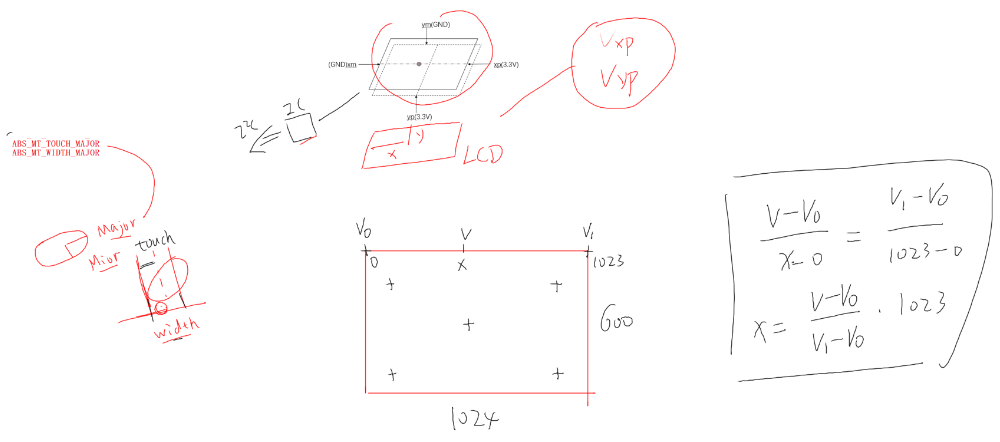 ym(GND)
(GND)xm
xp(3.3V)
yp(3.3V)
Vxp
Vyp
IC
I2C
x
y
LCD
ABS_MT_TOUCH_MAJOR
ABS_MT_WIDTH_MAJOR
Major
Mior
touch
width
V0 V V1
0 x 1023
600
1024
V-V0 / x-0 = V1-V0 / 1023-0
x = V-V0 / V1-V0 · 1023